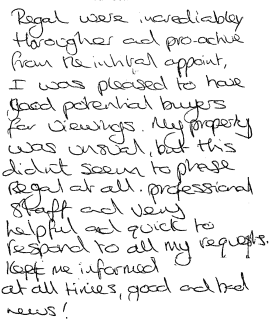 Regal were incrediabley
thorougher ad pro-active
from the inital appoint,
I was pleased to have
good potential buyers
for viewings. My property
was unsual, but this
didn't seem to phase
Regal at all. professional
staff and very
helpful ad quick to
respond to all my requests.
Kept me informed
at all times, good ad bad
news!